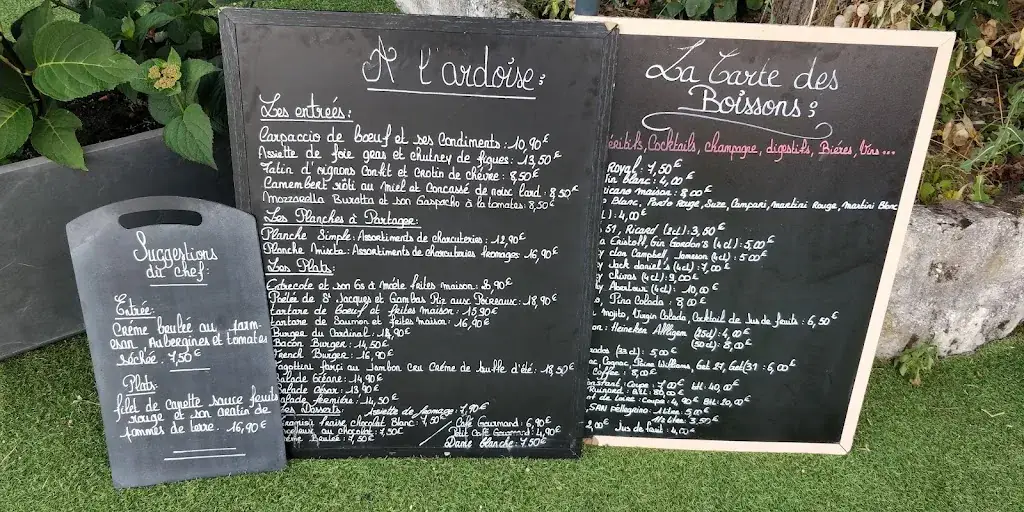 Suggestions
du chef:
Entrée:
Crème brulée au parm-
esan, Aubergines et tomates
séchée. 7,50€
Plat:
filet de canette sauce fruits
rouge et son gratin de
pommes de terre. 16,90€
A l'ardoise:
Les entrées:
Carpaccio de boeuf et ses Condiments: 10,90€
Assiette de foie gras et chutney de figues: 13,50€
Tatin d'oignons Confit et Crotin de chèvre: 8,50€
Camembert rôti au miel et Concassé de noix lard: 8,50€
Mozzarella Buratta et son Gaspacho à la tomates: 8,50€
Les Planches à Partager:
Planche Simple: Assortiments de charcuteries: 12,90€
Planche Mixte: Assortiments de charcuteries fromages: 16,90€
Les Plats:
et son Os à Moêle frites maison:
Poêlée de St Jacques et Gambas Riz aux Poireaux: 18,90€
tartare de boeuf et frites maison: 15,90€
tartare de Saumon et frites maison: 16,90€
Burger du Cardinal:
Bacon Burger: 14,50€
French Burger: 16,90€
farçi au Jambon Cru Crème de truffe d'été: 18,50€
Salade Océane: 14,90€
Salade César: 13,90€
Salade fermière: 14,50€
Les Desserts: Assiette de fromage: 7,90€
Tiramisu fraise chocolat Blanc: 7,50€ Café Gourmand: 6,90€
au chocolat: 7,50€ Petit Café Gourmand: 4,90€
Crème Brulée: 7,50€ Dame blanche: 7,50€
La Carte des
Boissons:
éritifs, Cocktails, champagne, digestifs, Bières, Vins...
Royal: 7,50€
in blanc: 4,00€
icano maison: 8,00€
Blanc, Porto Rouge, Suze, Campari, Martini Rouge, Martini Blanc
l): 4,00€
51, Ricard (2cl): 3,50€
a Eristoff, Gin Gordon's (4cl): 5,00€
y clan Campbell, Jameson (4cl): 5,00€
y Jack daniel's (4cl): 7,00€
y Chivas (4cl): 9,00€
y Aberlour (4cl): 10,00€
, Pina Colada: 8,00€
mojito, Virgin Colada, Cocktail de Jus de fruits: 6,50€
on: Heineken Affligem (25cl): 4,00€
(50cl): 8,00€
(33cl): 5,00€
ac, Cognac, Poire Williams, Get 27, Get 31: 6,00€
Coffee: 8,00€
Coupe: 7,00€ btl: 40,00€
Ruinard: btl: 80,00€
de Loire Coupe: 4,90€ Btl: 20,00€
SAN pellegrino 1 Litre: 5,00€
1/2 Litre: 3,50€
2,00€ Jus de fruit: 4,00€